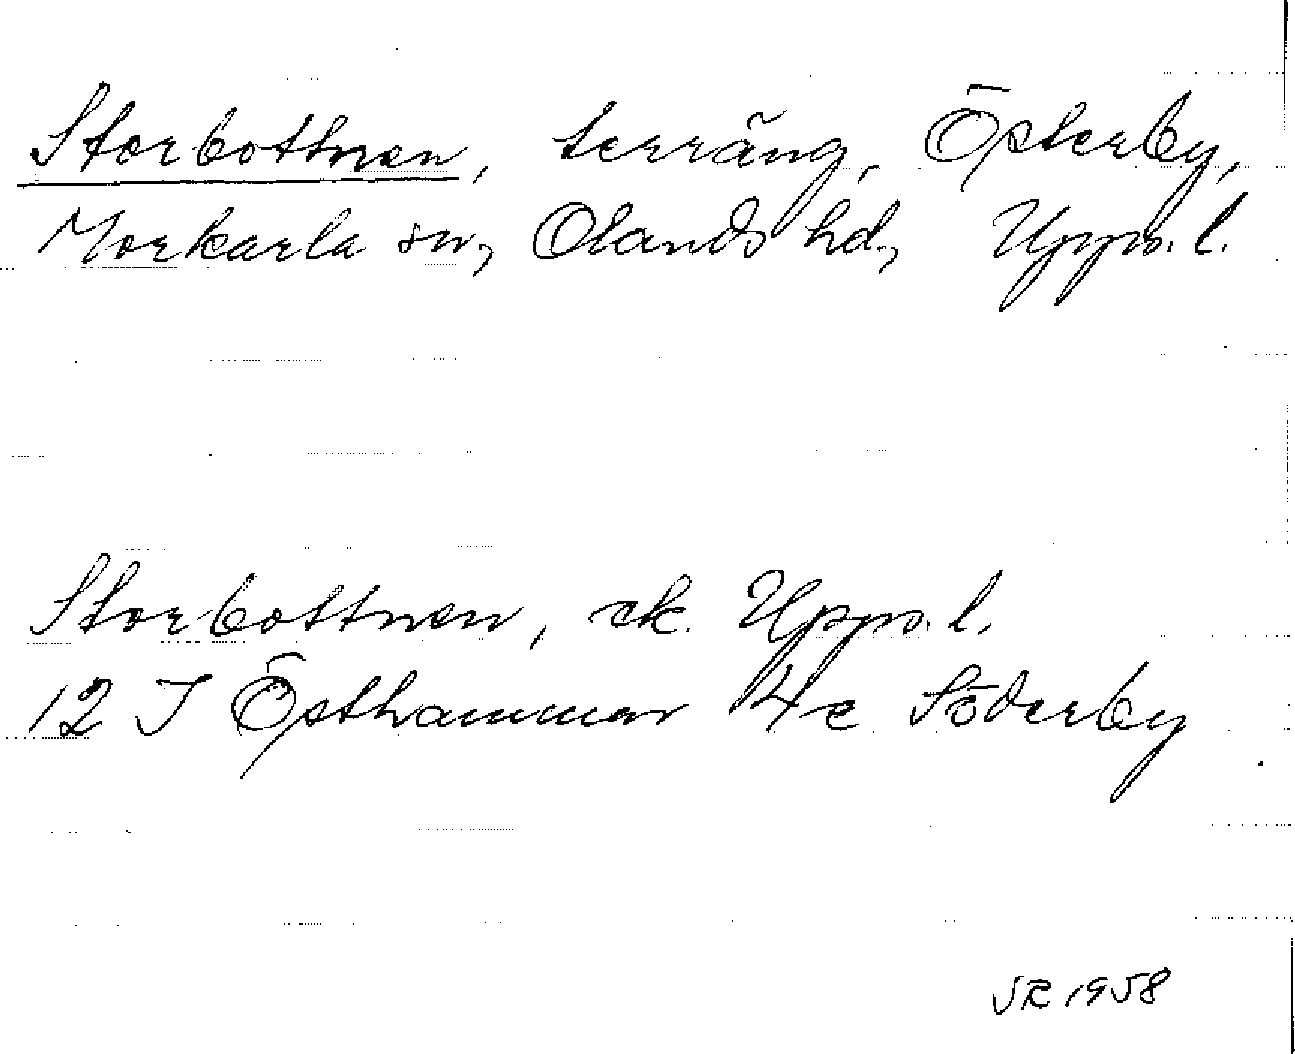 Storbottnen, terräng, Österby,
Morkarla sn, Olands hd., Upps. l.
Storbottnen, ek. Upps. l.
12 I Östhammar 4c Söderby
SR 1958